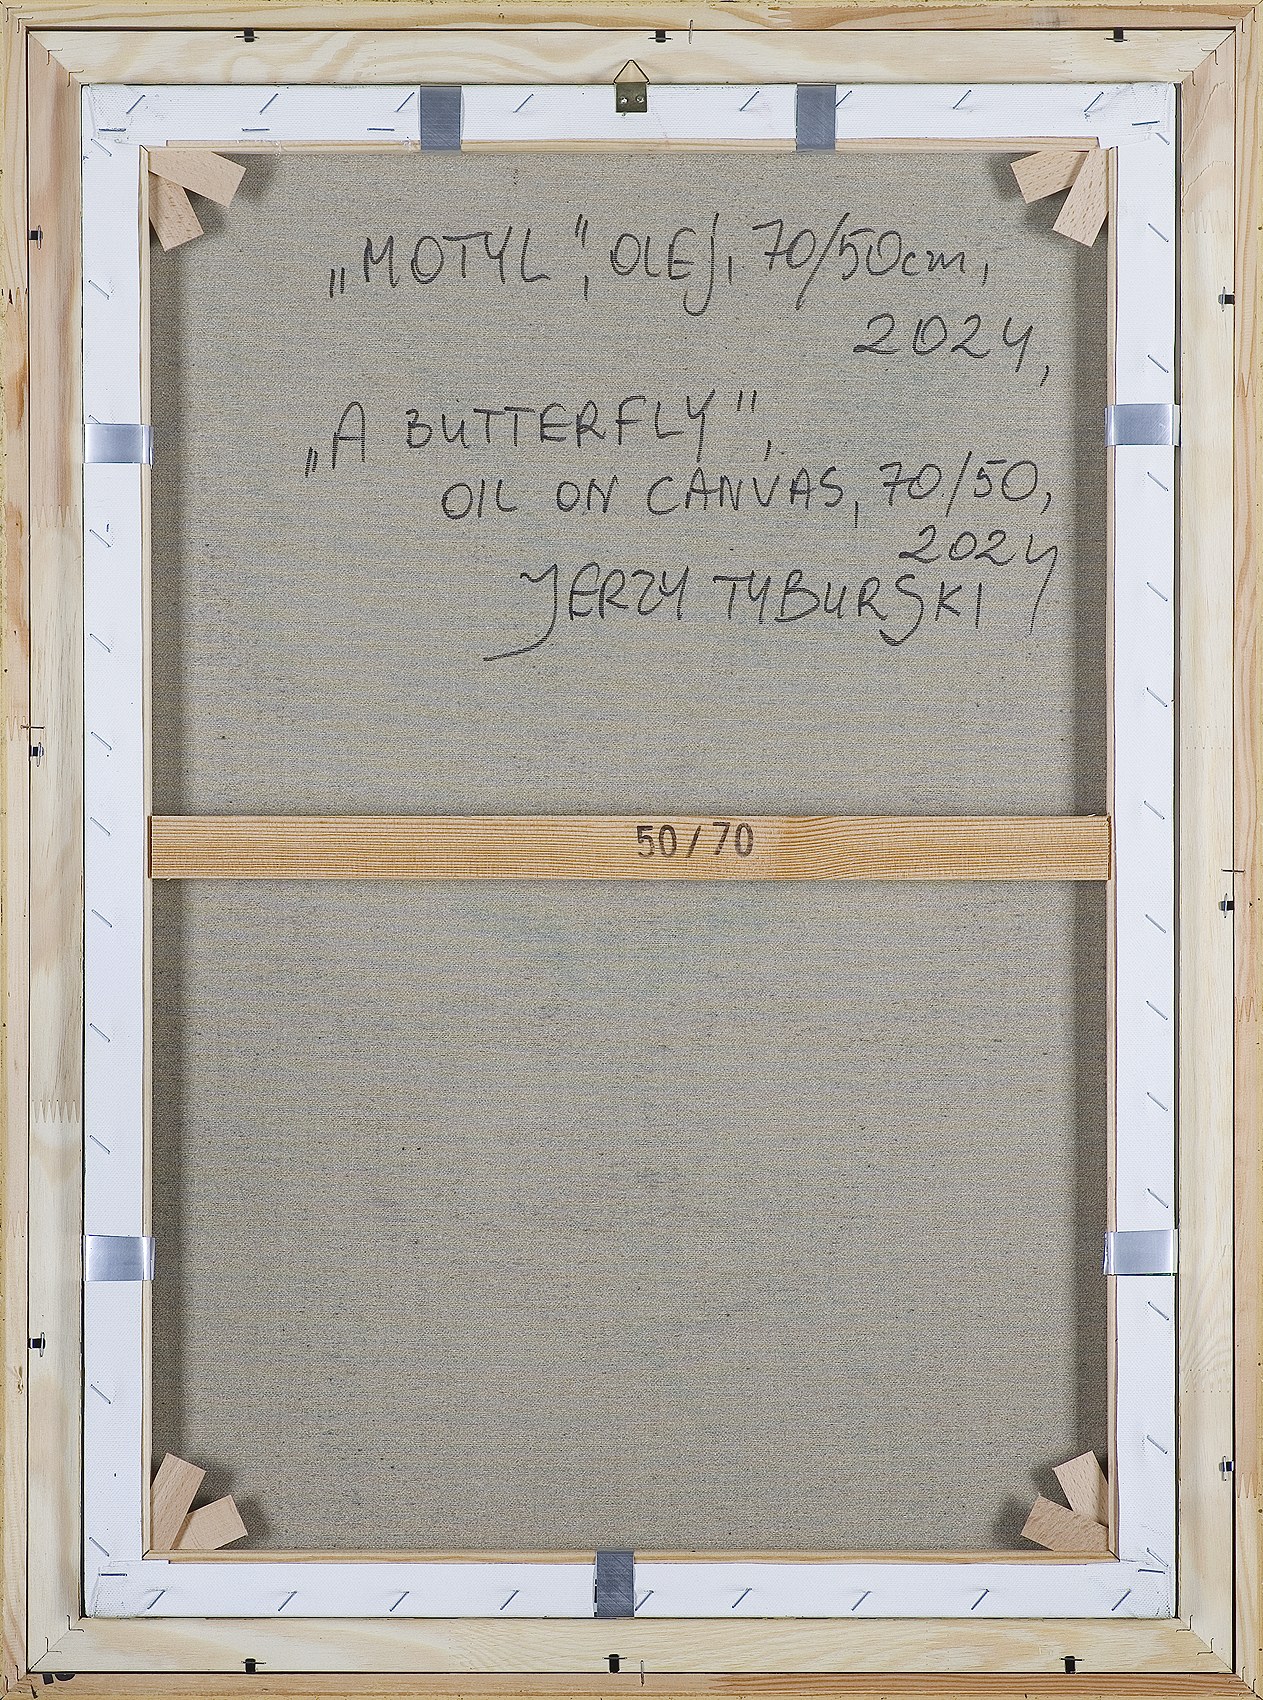 „MOTYL”, OLEJ, 70/50cm,
2024,
„A BUTTERFLY”,
OIL ON CANVAS, 70/50,
2024
JERZY TYBURSKI
50/70